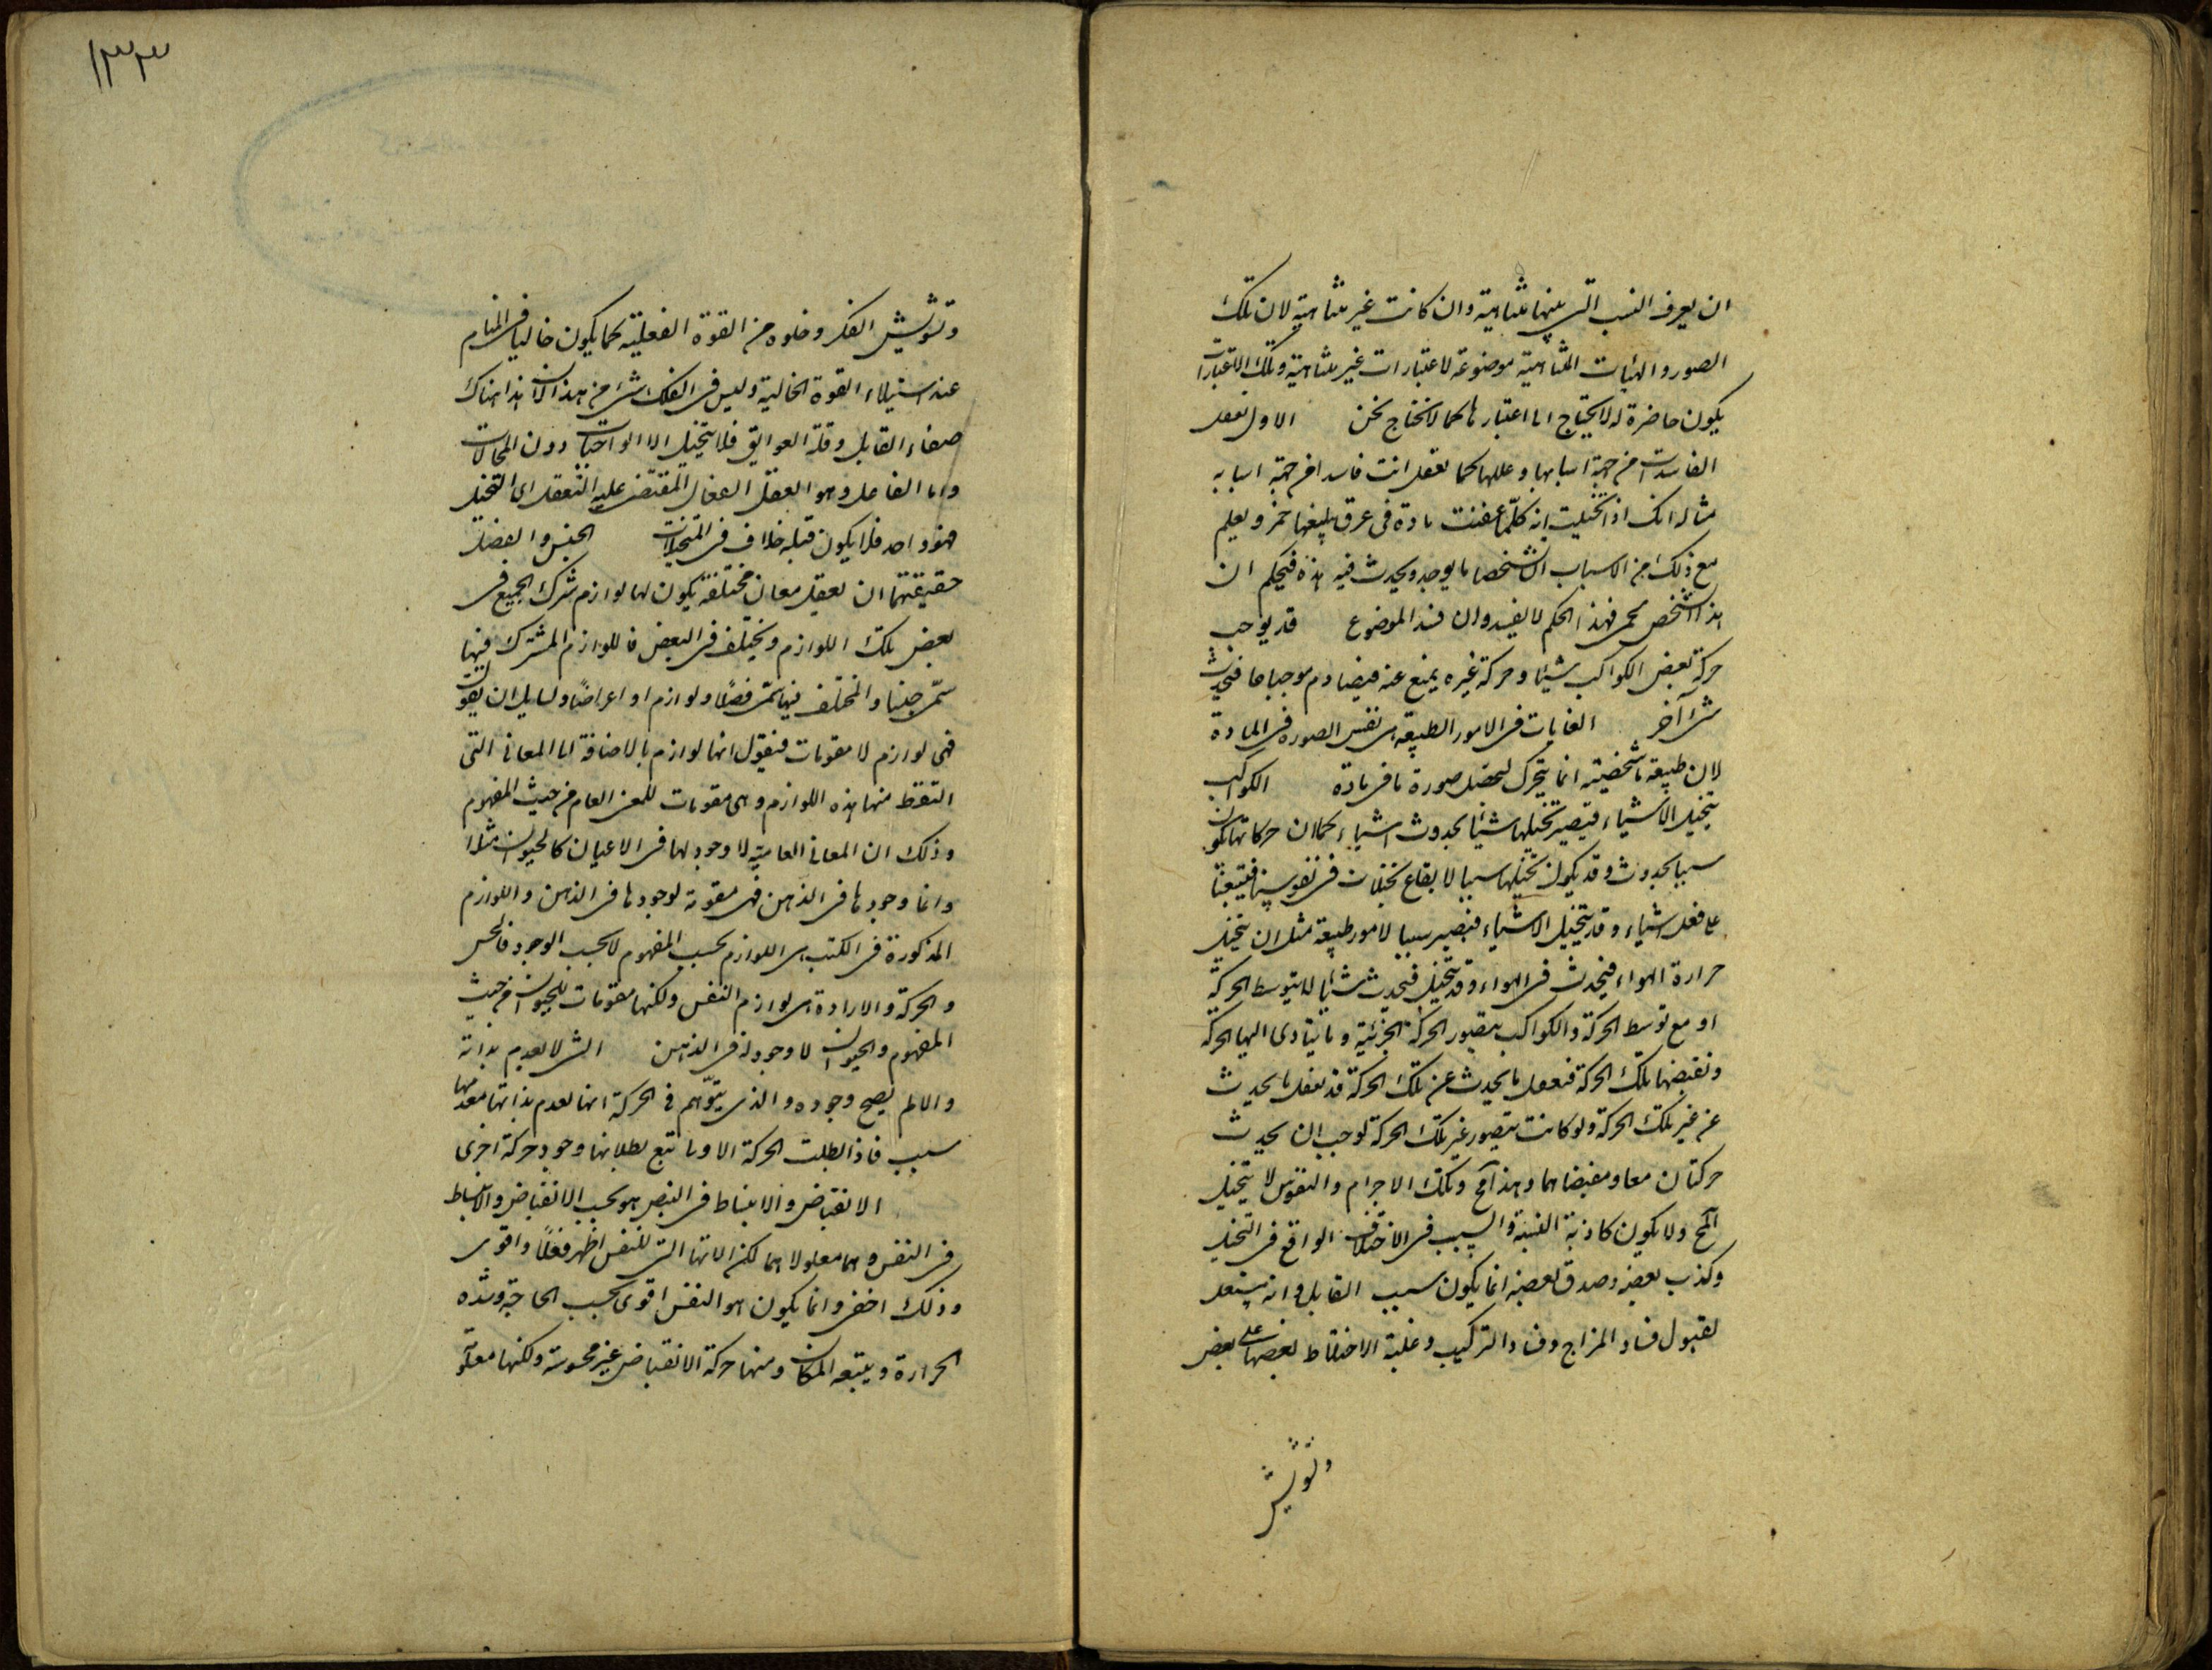 ان يعرف النسب التى بينها متناهية وان كانت غير متناهية لان تلك
الصور والهيآت المتناهية موضوعة لاعتبارات غير متناهية وتلك الاعتبارات
يكون حاضرة له لا يحتاج الى اعتبارها كما لا نحتاج نحن الاول تعقل
الفاسدات من جهة اسبابها وعللها كما تعقل انت فاسدا من جهة اسبابه
مثاله انك اذا تخيلت انه كلما عفنت مادة فى عرق يتبعها حمى ويعلم
مع ذلك من الاسباب ان شخصا ما يوجد ويحدث فيه هذه فيحكم ان
هذا الشخص يحم فهذا الحكم لا يفسد وان فسد الموضوع قد يوجب
حركة بعض الكواكب شيئا وحركة غيره يمنع عنه فيصادم موجباهما فيحدث
شئ آخر الغايات فى الامور الطبيعة هى نفس الصورة فى المادة
لان طبيعة ما شخصية انما يتحرك ليحصل صورة ما فى مادة الكواكب
يتخيل الاشياء فيصير تخيلها شيئا لحدوث اشياء كما ان حركاتها تكون
سببا لحدوث وقد يكون تخيلها سببا لايقاع تخيلات فى نفوسنا فتبعثنا
على فعل اشياء وقد يتخيل الاشياء فيصير سببا لامور طبيعة مثل ان يتخيل
حرارة الهواء فيحدث فى الهواء وقد يتخيل فيحدث شيئا لا بتوسط الحركة
او مع توسط الحركة والكواكب يتصور الحركة الجزئية وما يتادى اليها الحركة
ومقتضى تلك الحركة فتعقل ما يحدث عن تلك الحركة قد تعقل ما يحدث
عن غير تلك الحركة ولو كانت يتصور غير تلك الحركة لوجب ان يحدث
حركتان معا ومقتضاهما وهذا مح وتلك الاجرام والنفوس لا يتخيل
المح ولا يكون كاذبة النسبة والسبب فى الاختلاف الواقع فى التخيل
وكذب بعضه وصدق بعضه انما يكون بسبب القابل وانه يستعد
لقبول فساد المزاج وفساد التركيب وغلبة الاخلاط بعضها على بعض
وتشويش
١٣٣
وتشويش الفكر وخلوه من القوة العقلية كما يكون خاليا فى المنام
عند استيلاء القوة الخالية وليس فى الفلك شئ من هذا لان هناك
صفاء القابل وقلة العوايق فلا يتخيل الا الواجبات دون المحالات
واما الفاعل وهو العقل الفعال المفيض عليه التعقل اى التخيل
فهو واحد فلا يكون قبله خلاف فى المتخيلات الجنس والفصل
حقيقتهما ان يعقل معان مختلفة يكون لها لوازم يشترك الجميع فى
بعض تلك اللوازم ويختلف فى البعض فاللوازم المشترك فيها
سمى جنسا والمختلف فيها سمى فصلا ولوازم او اعراضا ولسايل ان يقول
فهى لوازم لا مقومات فيقول انها لوازم بالاضافة الى المعانى التى
التقط منها هذه اللوازم وهى مقومات للمعنى العام من حيث المفهوم
وذلك ان المعانى العامية لا وجود لها فى الاعيان كالحيوان مثلا
وانما وجودها فى الذهن فهى مقومة لوجودها فى الذهن واللوازم
المذكورة فى الكتب هى اللوازم بحسب المفهوم لا بحسب الوجود فالحس
والحركة والارادة هى لوازم النفس ولكنها مقومات للحيوان من حيث
المفهوم والحيوان لا وجود له فى الذهن الشئ لا يعدم بذاته
والا لم يصح وجوده والذى يتوهم فى الحركة انها تعدم بذاتها معدمها
سبب فاذا بطلت الحركة الاولى تبع بطلانها وجود حركة اخرى
الانقباض والانبساط فى النبض هو بحسب الانقباض والانبساط
فى النفس وهما معلولاهما لكن الانها التى للنفس اظهر فعلا واقوى
وذلك اخفى وانما يكون هو النفس اقوى بحسب الحاجة وشدة
الحرارة ويتبعه المكان ومنها حركة الانقباض غير محسوسة ولكنها معلومة